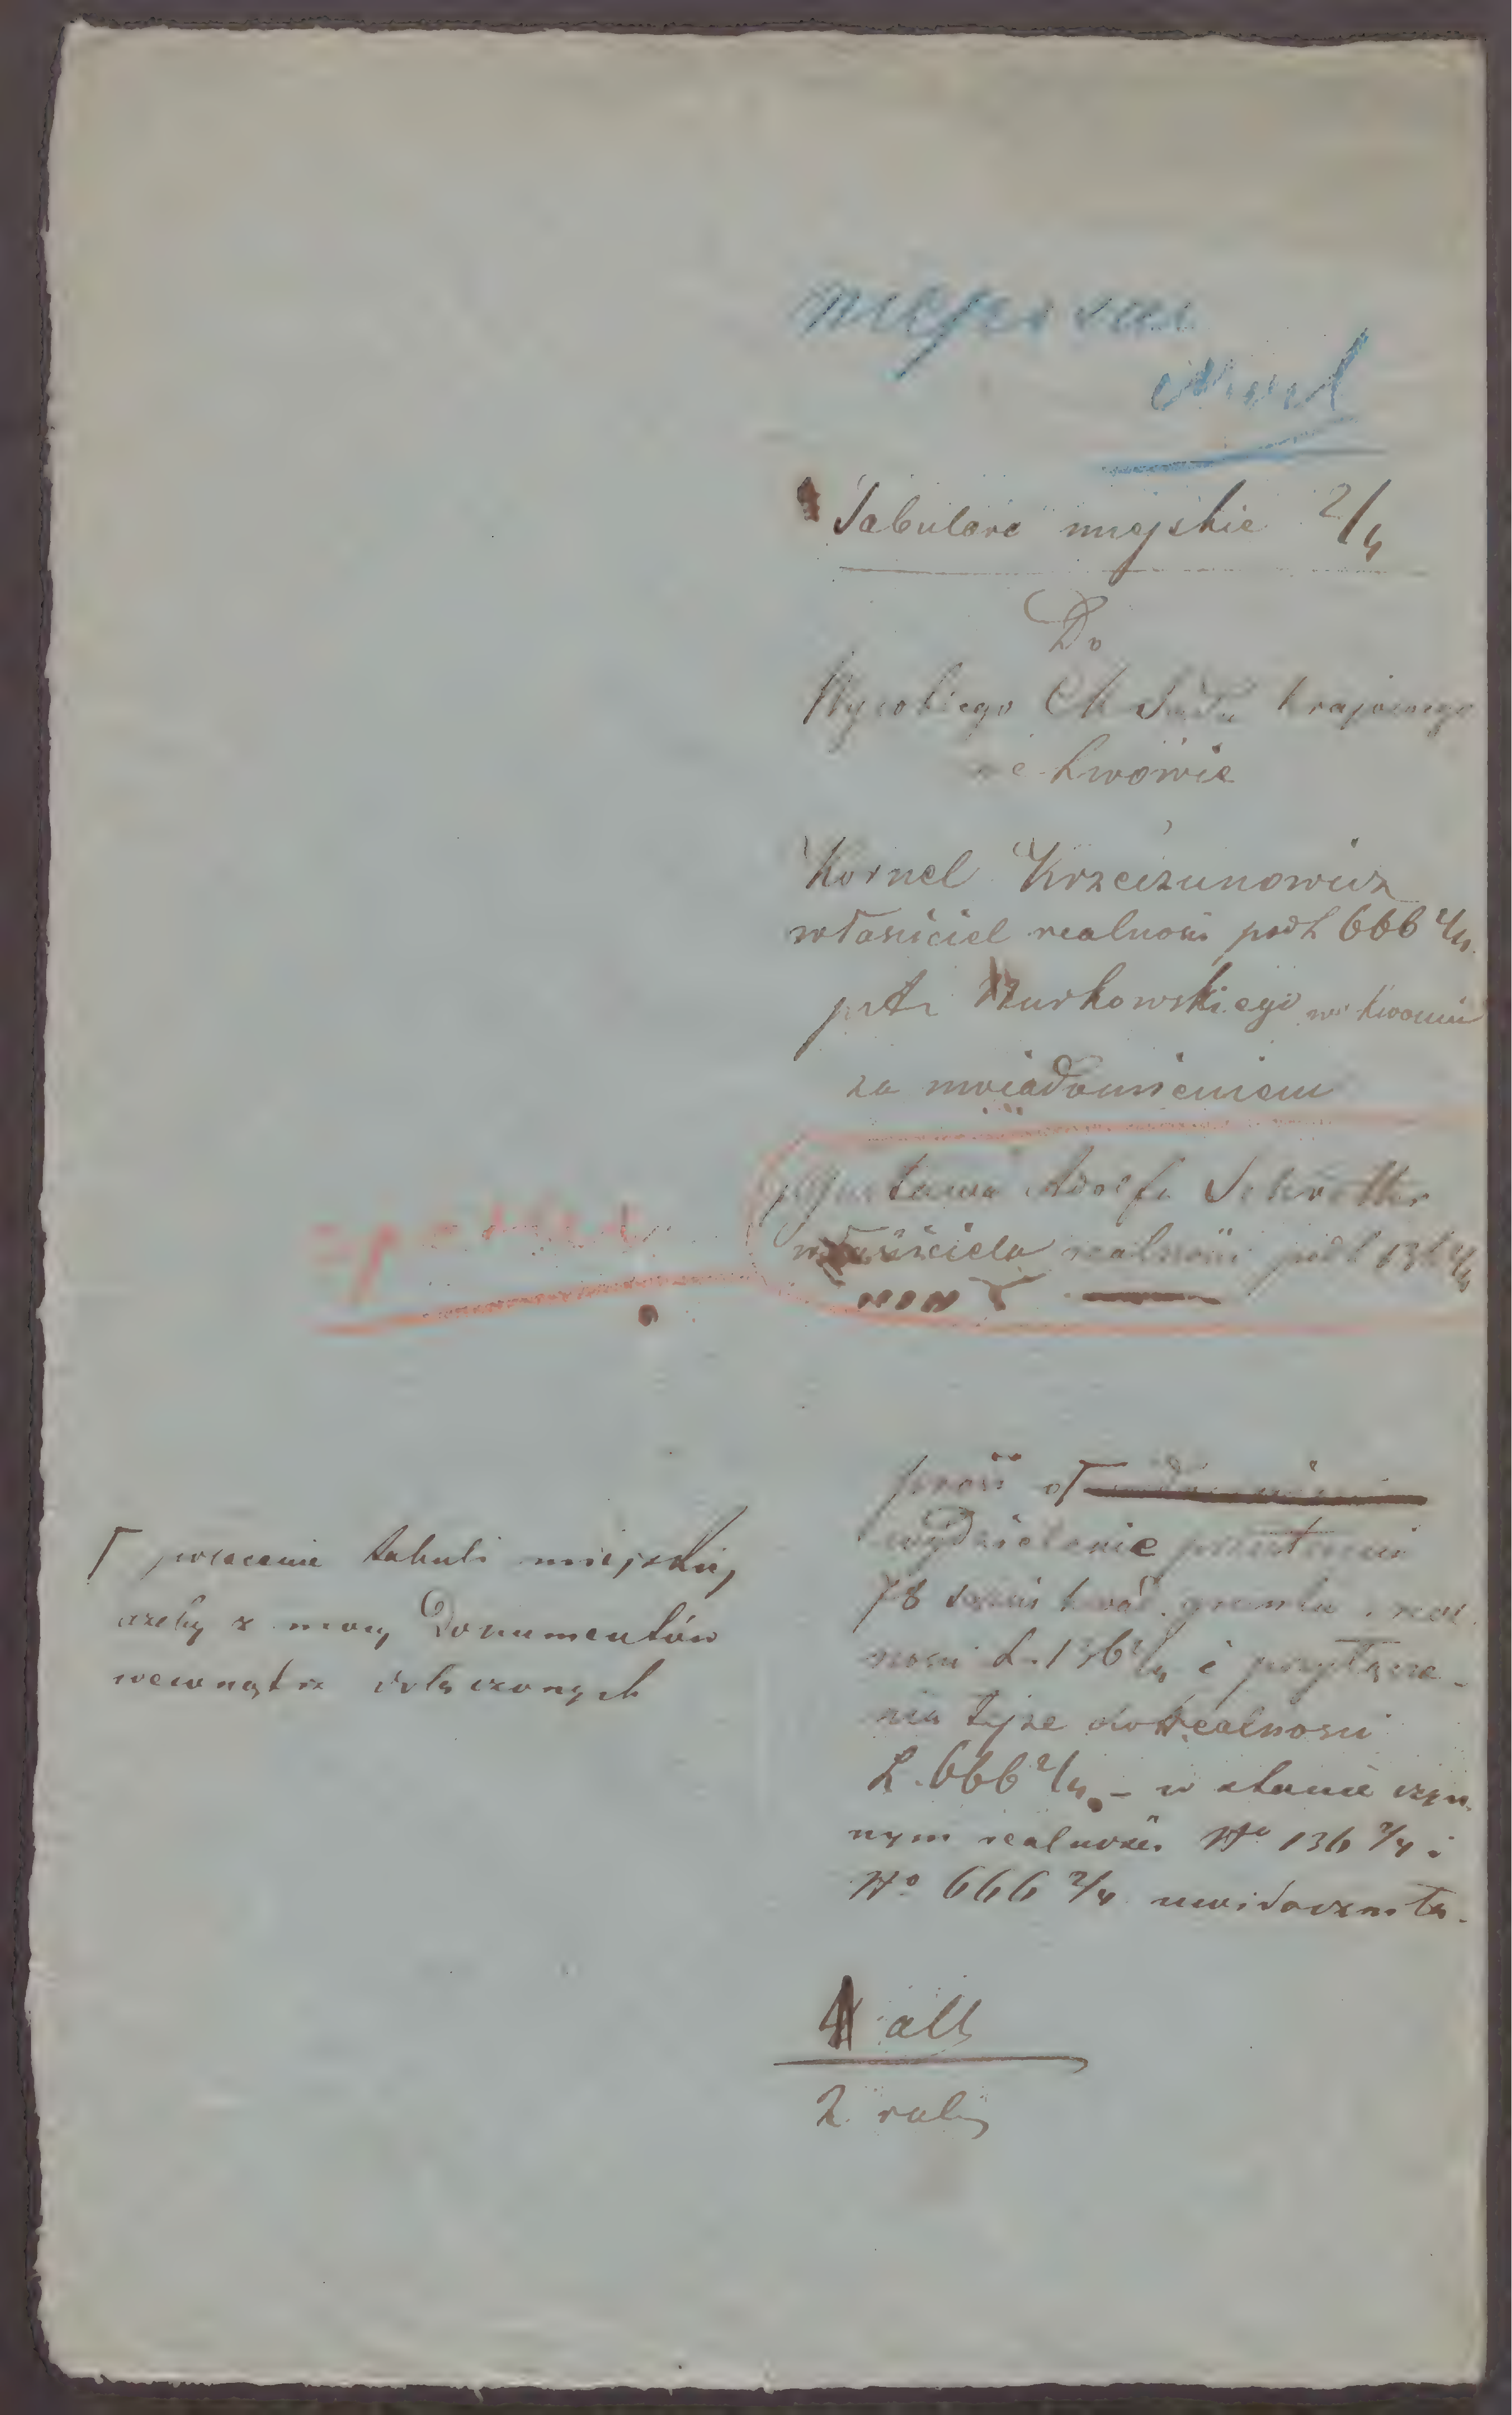 Tabulare miejskie 2/4
Do
Wysokiego CK Sądu krajowego
we Lwowie
Kornel Krzeczunowicz
właściciel realności podL 666 2/4
Żurkowskiego we Lwowie
za uwiadomieniem
Gustawa Adolfa Schrötter
właściciela realności podL 136 2/4
prosi o
wydzielenie przestrzeni
78 sążni kwad. gruntu z real
ności L. 136 2/4 i przyłącze-
nia tejże do realności
L. 666 2/4 - w stanie czyn
nym realności No 136 2/4 i
No 666 2/4 uwidoczniła.
polecenie tabuli miejskiej,
ażeby z mocy Dokumentów
wewnątrz dołączonych
4 all
2 rub